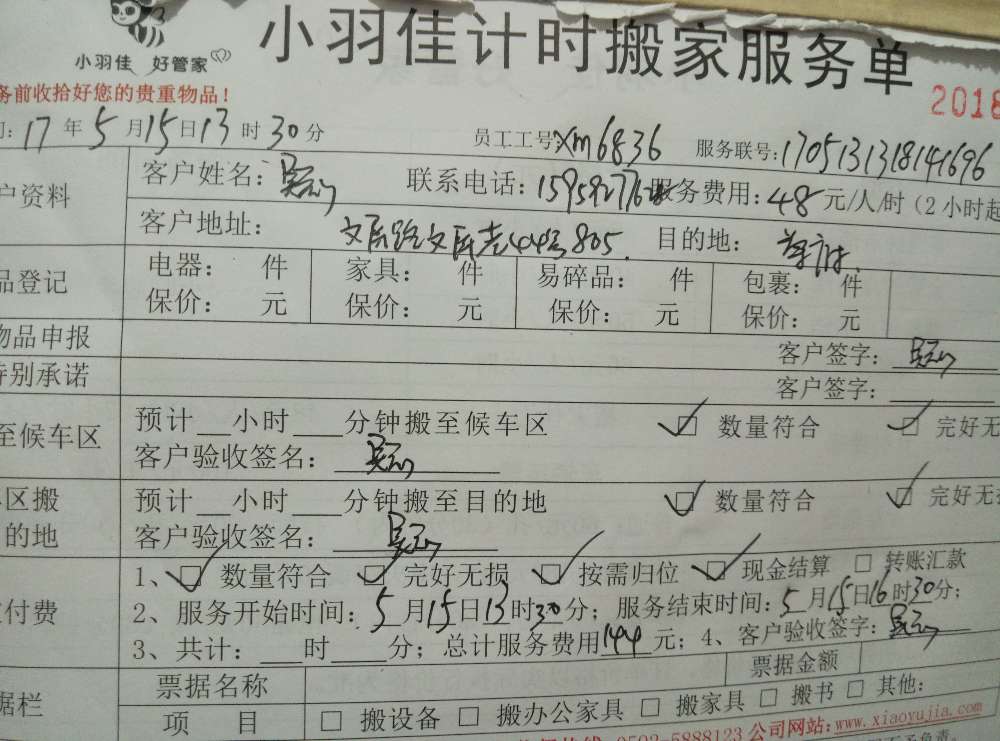 小羽佳 好管家
小羽佳计时搬家服务单
务前收拾好您的贵重物品！
2018
17年5月15日13时30分 员工工号:xm6836 服务联号:1705131318141696
户资料 客户姓名: 联系电话: 服务费用:48元/人/时（2小时起
客户地址： 805. 目的地：
品登记 电器： 件 家具： 件 易碎品： 件 包裹： 件
保价： 元 保价： 元 保价： 元 保价： 元
物品申报 客户签字：
特别承诺 客户签字：
至候车区 预计__小时___分钟搬至候车区 数量符合 完好无
客户验收签名：
区搬 预计__小时___分钟搬至目的地 数量符合 完好无
的地 客户验收签名：
1、 数量符合 完好无损 按需归位 现金结算 转账汇款
付费 2、服务开始时间：5月15日13时30分；服务结束时间：5月15日16时30分；
3、共计：___时____分；总计服务费用144元；4、客户验收签字：
据栏 票据名称 票据金额
项 目 □ 搬设备 □ 搬办公家具 □ 搬家具 □ 搬书 □ 其他:
0592-5888123 公司网站:www.xiaoyujia.com